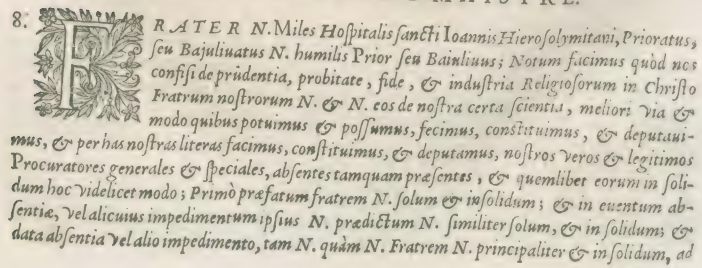 8. FRATER N. Miles Hoſpitalis ſancti Ioannis Hieroſolymitani, Prioratus,
ſeu Bajuliuatus N. humilis Prior ſeu Baiuliuus; Notum facimus quòd nos
confiſi de prudentia, probitate, fide, & induſtria Religioſorum in Chriſto
Fratrum noſtrorum N. & N. eos de noſtra certa ſcientia, meliori via &
modo quibus potuimus & poſſumus, fecimus, conſtituimus, & deputaui-
mus, & per has noſtras literas facimus, conſtituimus, & deputamus, noſtros veros & legitimos
Procuratores generales & ſpeciales, abſentes tamquam præſentes, & quemlibet eorum in ſoli-
dum hoc videlicet modo; Primò præfatum fratrem N. ſolum & inſolidum; & in euentum ab-
ſentiæ, vel alicuius impedimentum ipſius N. prædictum N. ſimiliter ſolum, & in ſolidum; &
data abſentia vel alio impedimento, tam N. quàm N. Fratrem N. principaliter & in ſolidum, ad